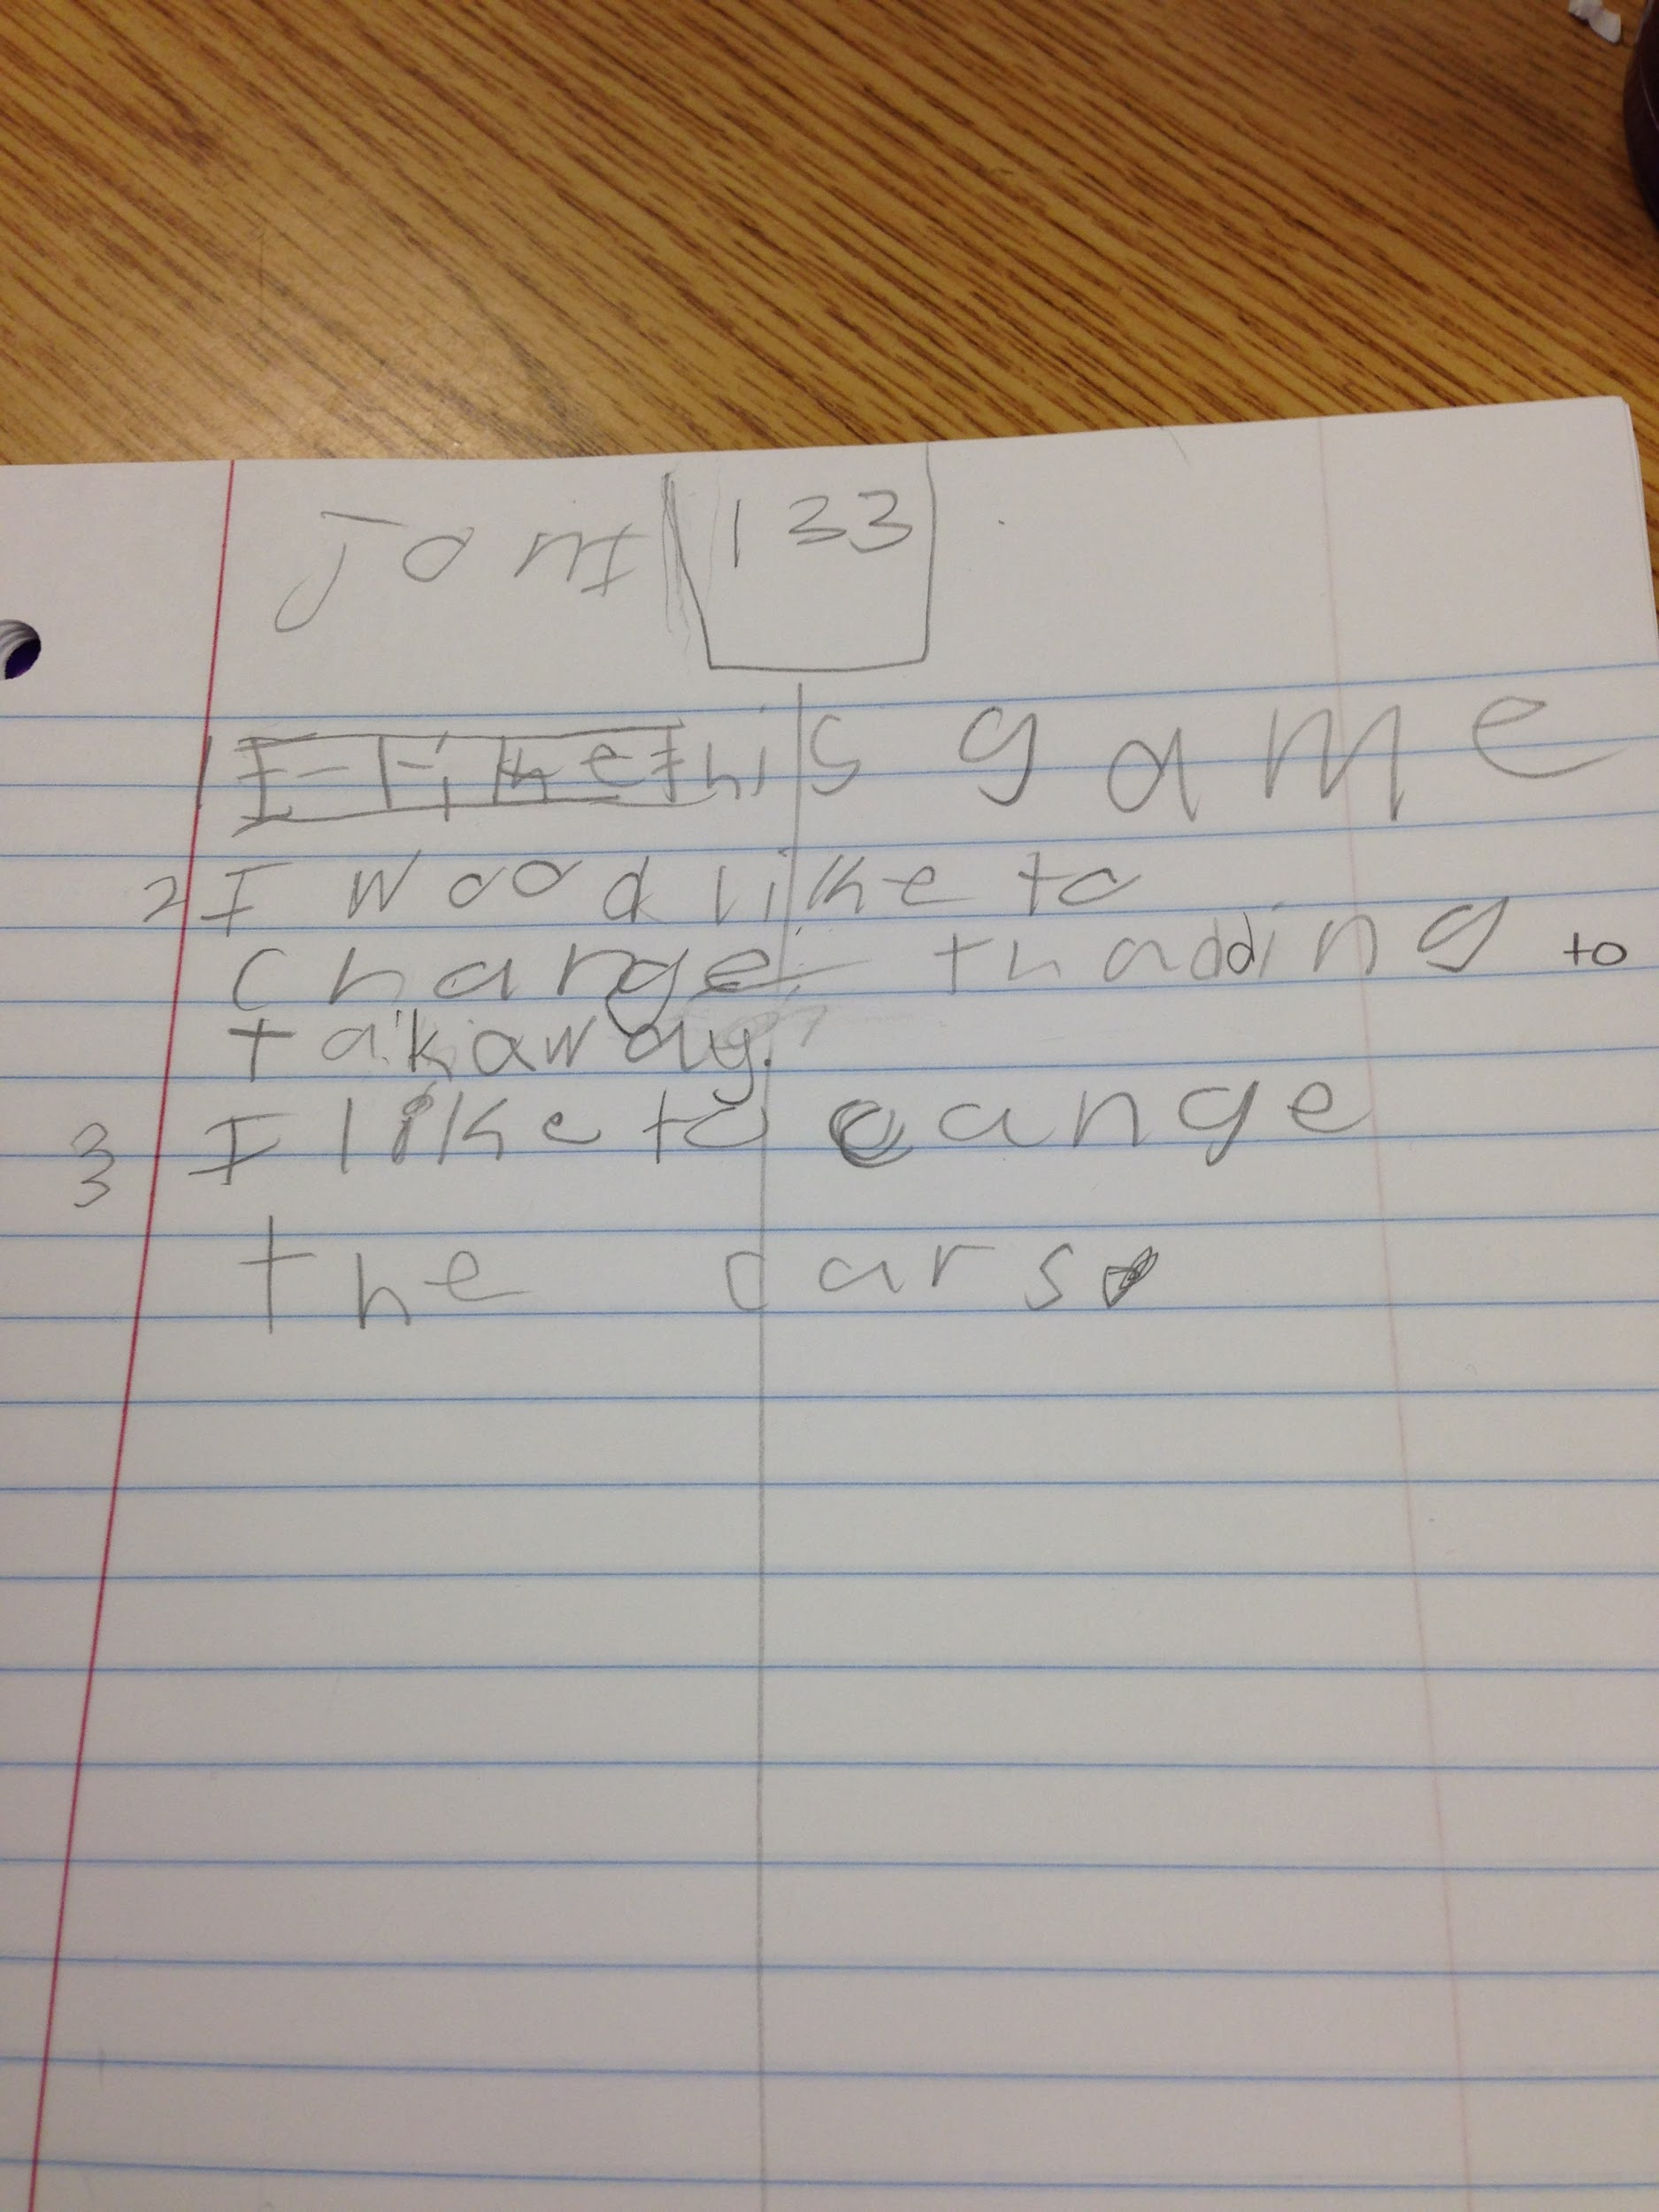 JonI 133
1 I like this game
2 I wood like to
change th adding to
takaway.
3 I like to cange
the cars.